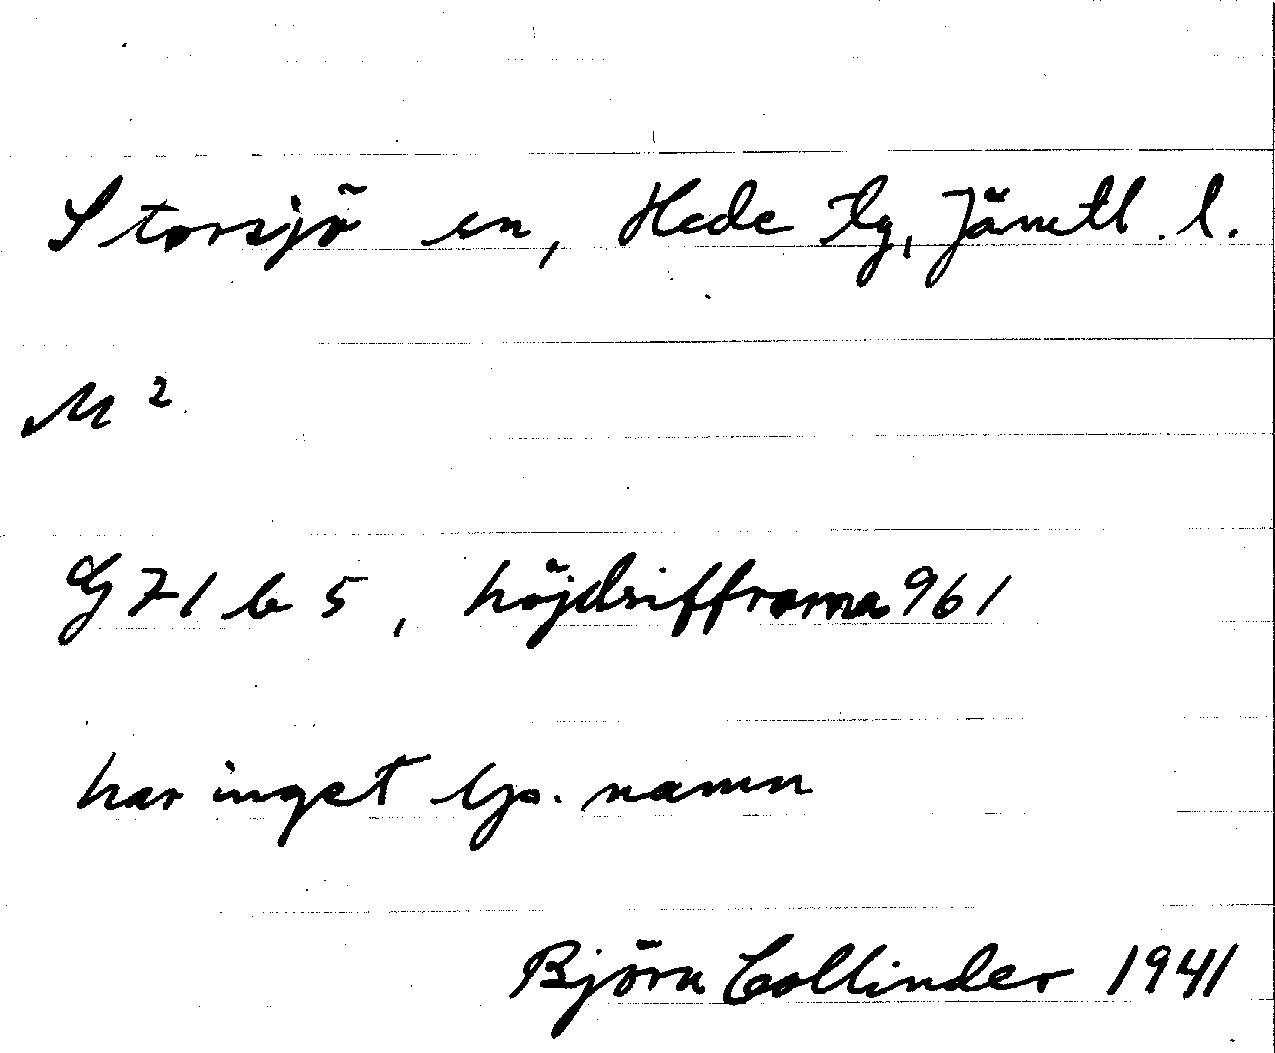 Storsjö sn, Hede tg, Jämtl. l.
M²
G 71 b 5, höjdsiffrorna 961
har inget lp. namn
Björn Collinder 1941